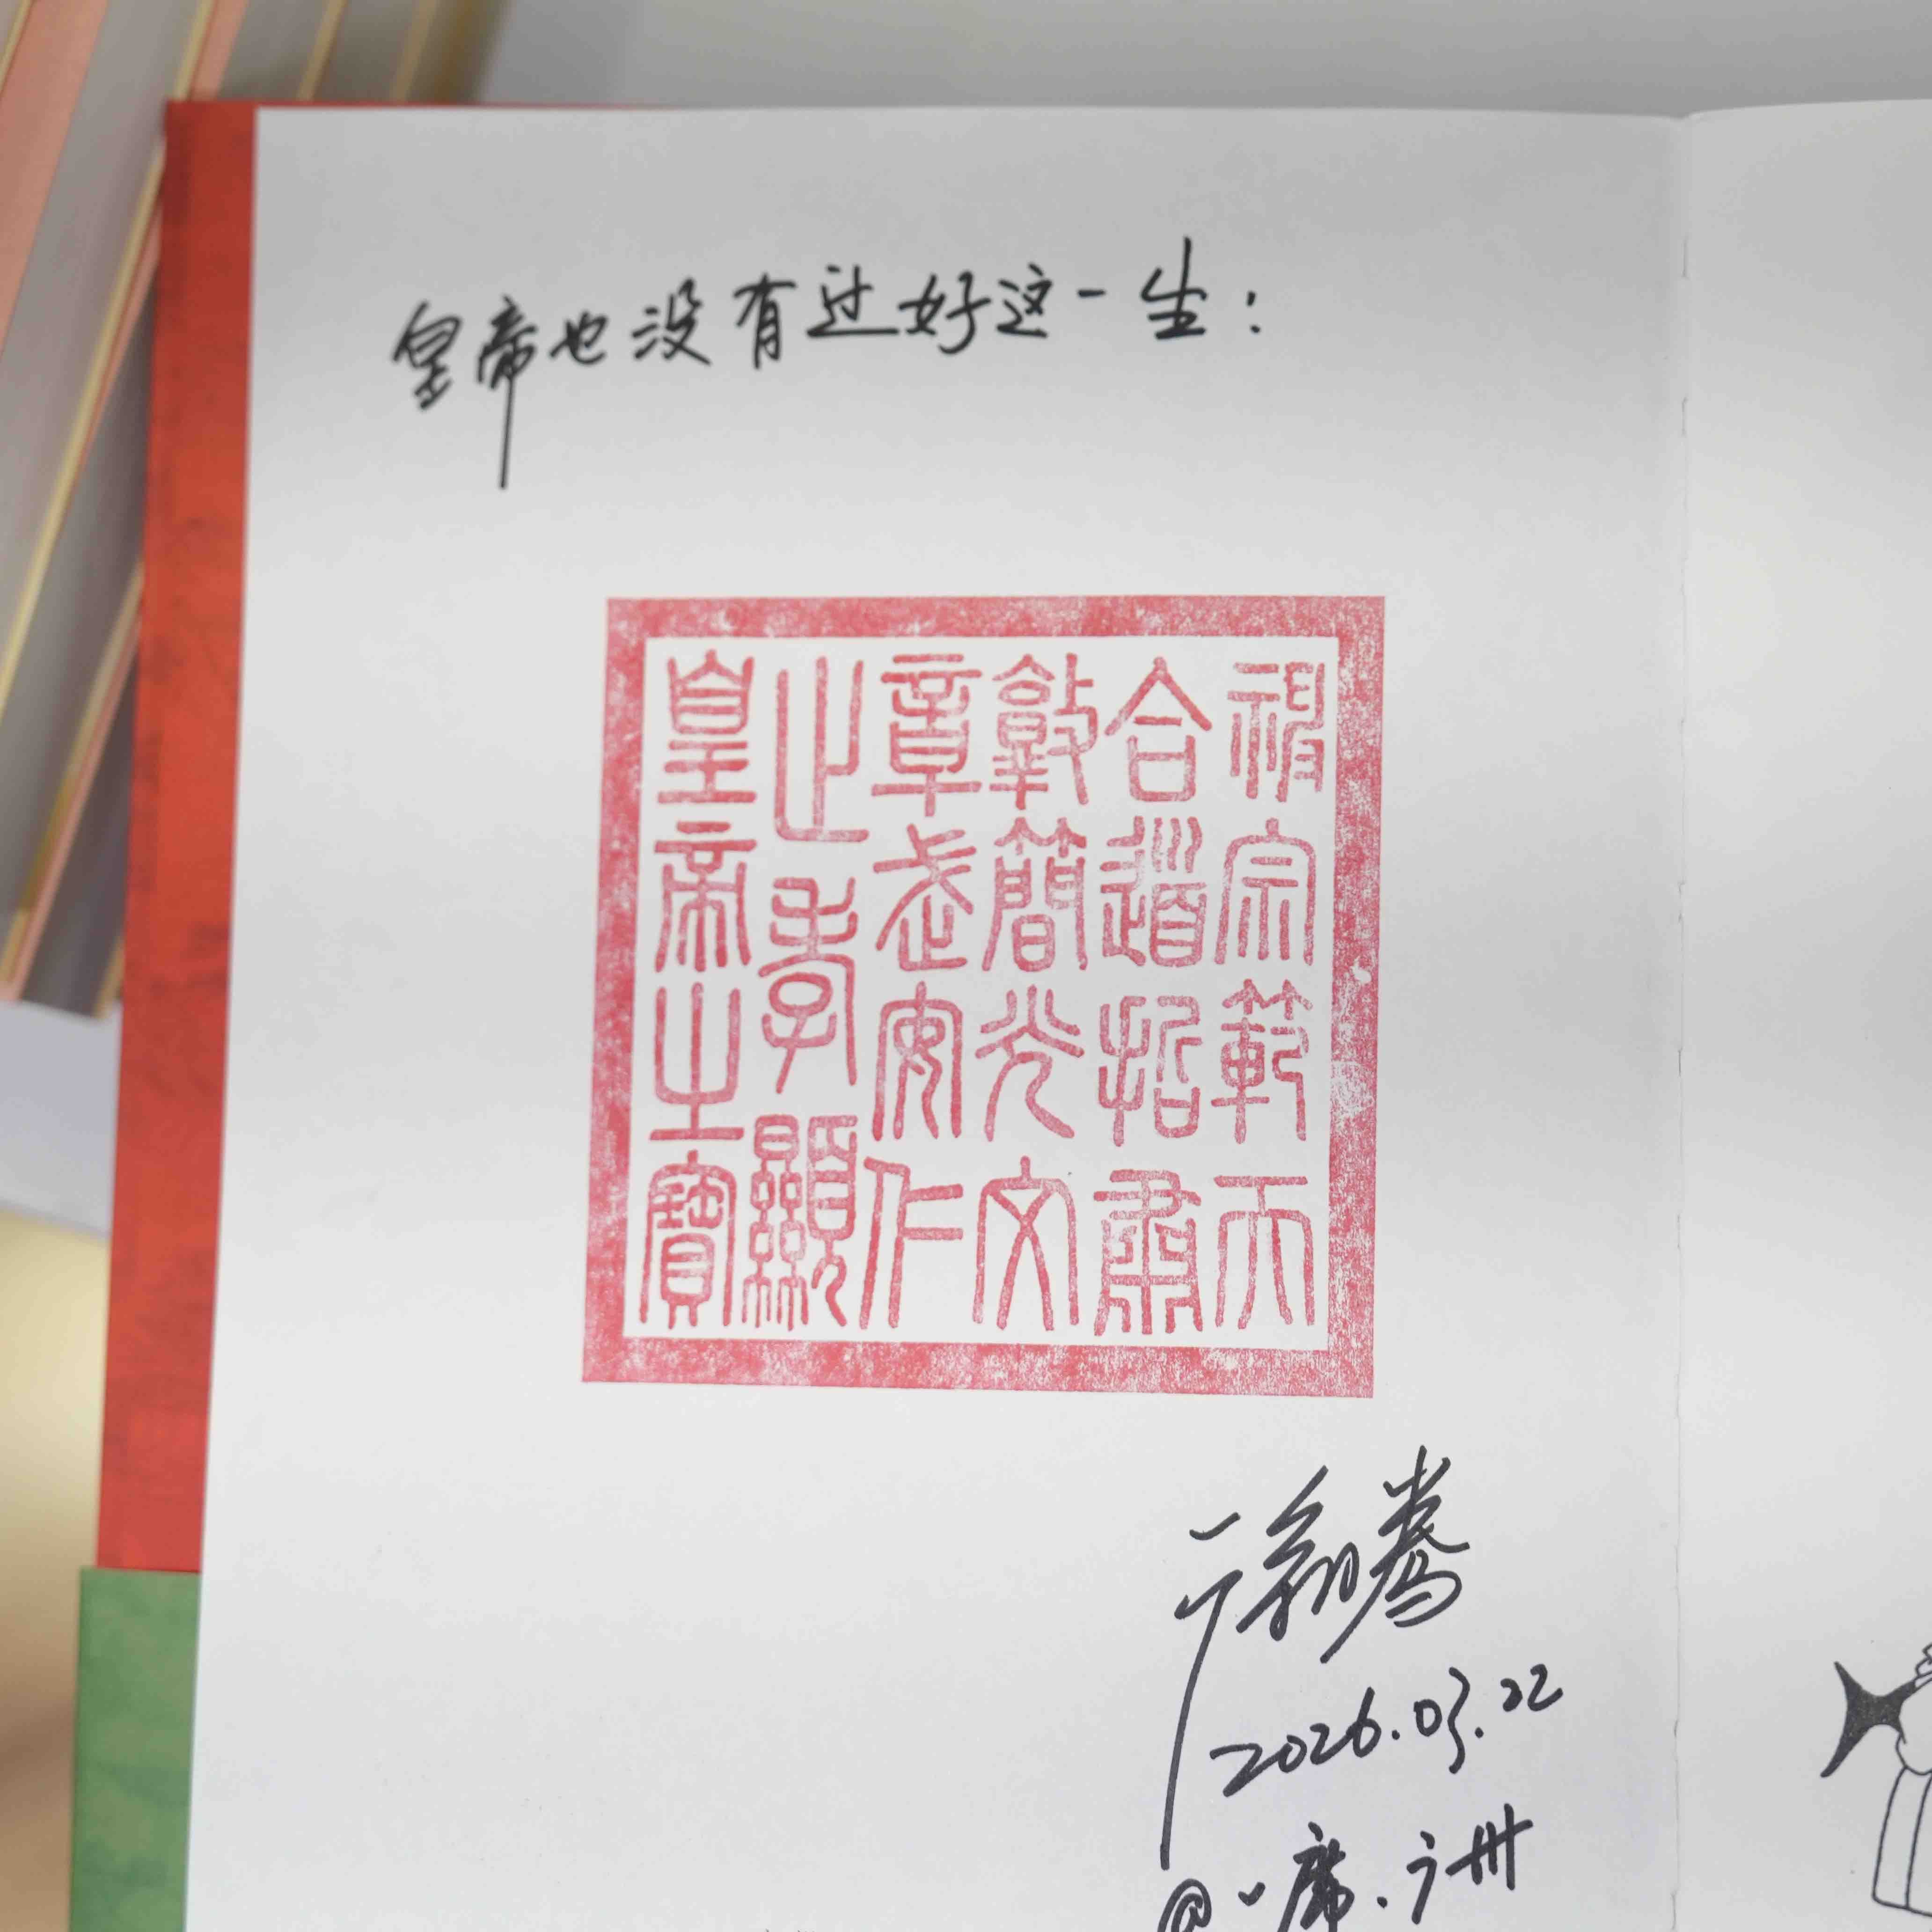 皇帝也没有过好这一生：
神宗範天
合道哲肅
敦簡光文
章武安仁
止孝顯
皇帝之寶
2026.03.22
@一席·广州